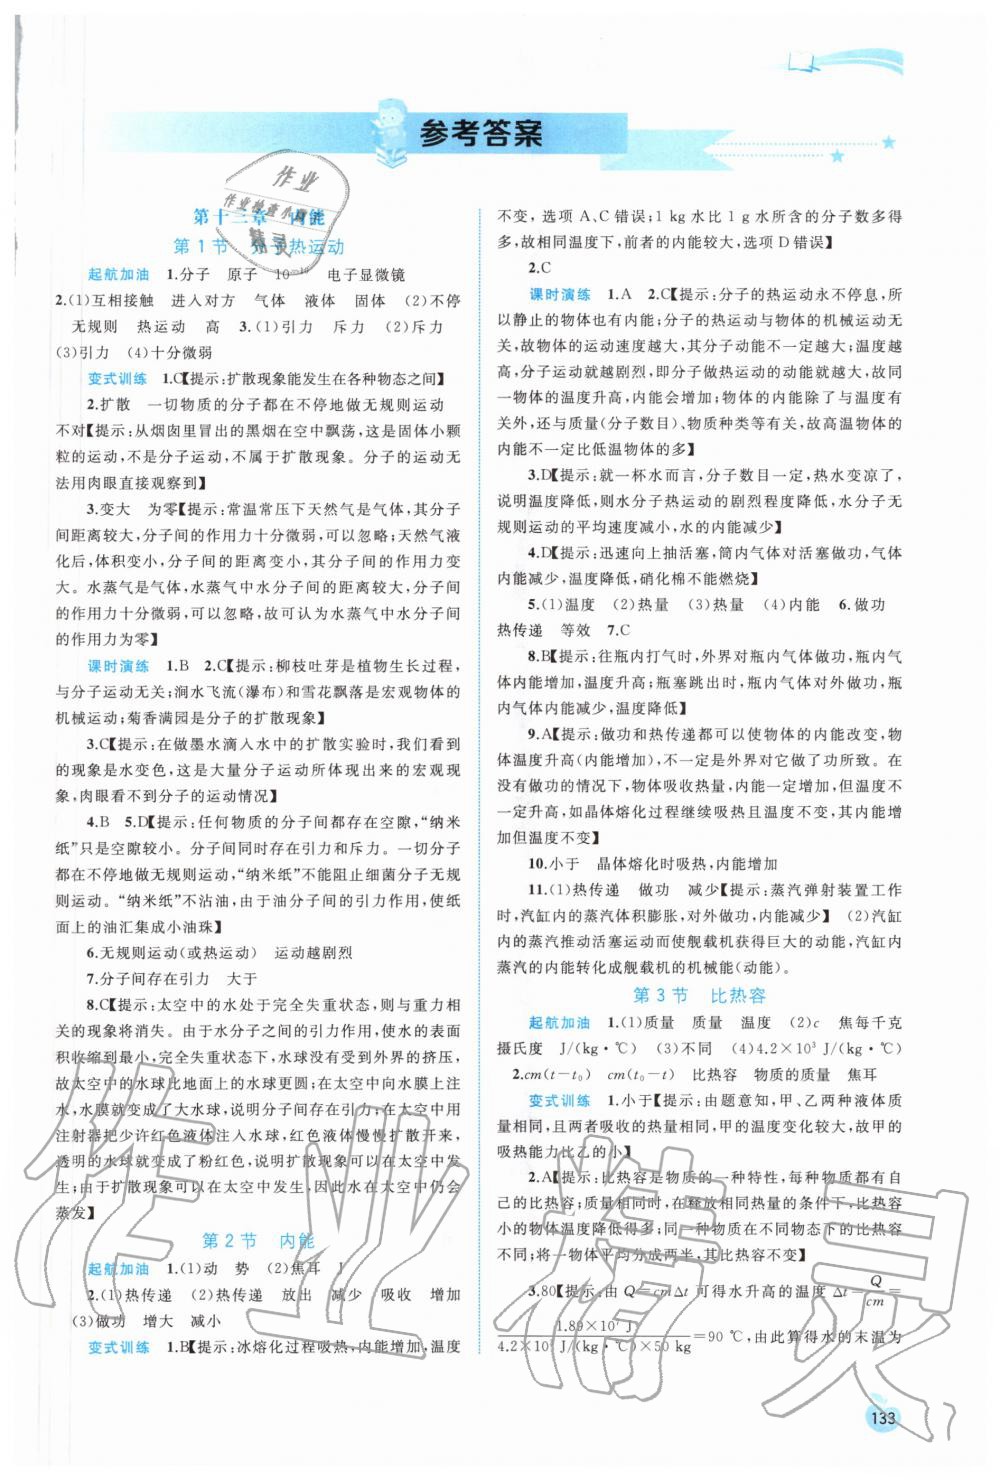 参考答案
第十三章　内能
第1节　分子热运动
起航加油　1.分子　原子　10⁻¹⁰　电子显微镜
2.(1)互相接触　进入对方　气体　液体　固体　(2)不停
无规则　热运动　高　3.(1)引力　斥力　(2)斥力
(3)引力　(4)十分微弱
变式训练　1.C【提示:扩散现象能发生在各种物态之间】
2.扩散　一切物质的分子都在不停地做无规则运动
不对【提示:从烟囱里冒出的黑烟在空中飘荡,这是固体小颗
粒的运动,不是分子运动,不属于扩散现象。分子的运动无
法用肉眼直接观察到】
3.变大　为零【提示:常温常压下天然气是气体,其分子
间距离较大,分子间的作用力十分微弱,可以忽略;天然气液
化后,体积变小,分子间的距离变小,其分子间的作用力变
大。水蒸气是气体,水蒸气中水分子间的距离较大,分子间
的作用力十分微弱,可以忽略,故可认为水蒸气中水分子间
的作用力为零】
课时演练　1.B　2.C【提示:柳枝吐芽是植物生长过程,
与分子运动无关;涧水飞流(瀑布)和雪花飘落是宏观物体的
机械运动;菊香满园是分子的扩散现象】
3.C【提示:在做墨水滴入水中的扩散实验时,我们看到
的现象是水变色,这是大量分子运动所体现出来的宏观现
象,肉眼看不到分子的运动情况】
4.B　5.D【提示:任何物质的分子间都存在空隙,“纳米
纸”只是空隙较小。分子间同时存在引力和斥力。一切分子都
在不停地做无规则运动,“纳米纸”不能阻止细菌分子无规
则运动。“纳米纸”不沾油,由于油分子间的引力作用,使纸
面上的油汇集成小油珠】
6.无规则运动(或热运动)　运动越剧烈
7.分子间存在引力　大于
8.C【提示:太空中的水处于完全失重状态,则与重力相
关的现象将消失。由于水分子之间的引力作用,使水的表面
积收缩到最小,在完全失重状态,水球没有受到外界的挤压,
故太空中的水球比地面上的水球更圆;在太空中向水膜上注
水,水膜就变成了大水球,说明分子间存在引力;在太空中用
注射器把少许红色液体注入水球,红色液体慢慢扩散开来,
透明的水球就变成了粉红色,说明扩散可以在太空中发
生;由于扩散现象可以在太空中发生,因此水在太空中仍会
蒸发】
第2节　内能
起航加油　1.(1)动　势　(2)焦耳　J
2.(1)热传递　(2)热传递　放出　减少　吸收　增加
(3)做功　增大　减小
变式训练　1.B【提示:冰熔化过程吸热,内能增加,温度
不变,选项A、C错误;1 kg水比1 g水所含的分子数多得
多,相同温度下,前者的内能较大,选项D错误】
2.C
课时演练　1.A　2.C【提示:分子的热运动永不停息,所
以静止的物体也有内能;分子的热运动与物体的机械运动无
关,故物体的运动速度越大,其分子动能不一定越大;温度越
高,分子运动就越剧烈,即分子做热运动的动能就越大,故同
一物体的温度升高,内能会增加;物体的内能除了与温度有
关外,还与质量(分子数目)、物质种类等有关,故高温物体的
内能不一定比低温物体的多】
3.D【提示:就一杯水而言,分子数目一定,热水变凉了,
说明温度降低,则水分子热运动的剧烈程度降低,水分子无
规则运动的平均速度减小,水的内能减少】
4.D【提示:迅速向上抽活塞,筒内气体对活塞做功,气体
内能减少,温度降低,硝化棉不能燃烧】
5.(1)温度　(2)热量　(3)热量　(4)内能　6.做功
热传递　等效　7.C
8.B【提示:往瓶内打气时,外界对瓶内气体做功,瓶内气
体内能增加,温度升高;瓶塞跳出时,瓶内气体对外做功,瓶
内气体内能减少,温度降低】
9.A【提示:做功和热传递都可以使物体的内能改变,物
体温度升高(内能增加),不一定是外界对它做了功所致。在
没有做功的情况下,物体吸收热量,内能一定增加,但温度不
一定升高,如晶体熔化过程继续吸热且温度不变,其内能增
加但温度不变】
10.小于　晶体熔化时吸热,内能增加
11.(1)热传递　做功　减少【提示:蒸汽弹射装置工作
时,汽缸内的蒸汽体积膨胀,对外做功,内能减少】　(2)汽缸
内的蒸汽推动活塞运动而使舰载机获得巨大的动能,汽缸内
蒸汽的内能转化成舰载机的机械能(动能)。
第3节　比热容
起航加油　1.(1)质量　质量　温度　(2)c　焦每千克
摄氏度　J/(kg·℃)　(3)不同　(4)4.2×10³ J/(kg·℃)
2.cm(t−t₀)　cm(t₀−t)　比热容　物质的质量　焦耳
变式训练　1.小于【提示:由题意知,甲、乙两种液体质
量相同,且两者吸收的热量相同,甲的温度变化较大,故甲的
吸热能力比乙的小】
2.A【提示:比热容是物质的一种特性,每种物质都有自
己的比热容;质量相同时,在释放相同热量的条件下,比热容
小的物体温度降低得多;同一种物质在不同物态下的比热容
不同;将一物体平均分成两半,其比热容不变】
3.80【提示:由Q=cmΔt可得水升高的温度Δt=Q/cm=
1.89×10⁷ J/(4.2×10³ J/(kg·℃)×50 kg)=90 ℃,由此算得水的末温为
133
作业
作业检查小帮手
精灵
作业精灵